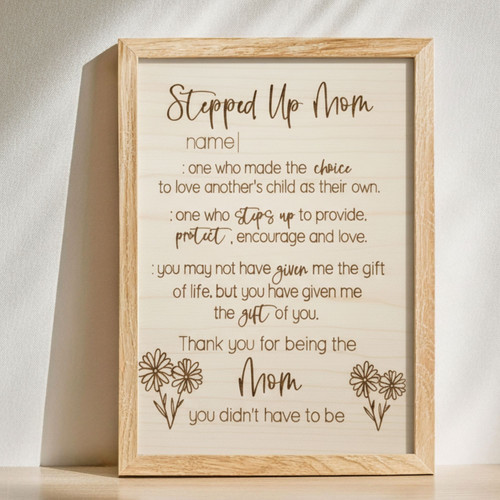 Stepped Up Mom
name|
: one who made the choice
to love another's child as their own.
: one who steps up to provide,
protect, encourage and love.
: you may not have given me the gift
of life, but you have given me
the gift of you.
Thank you for being the
Mom
you didn't have to be